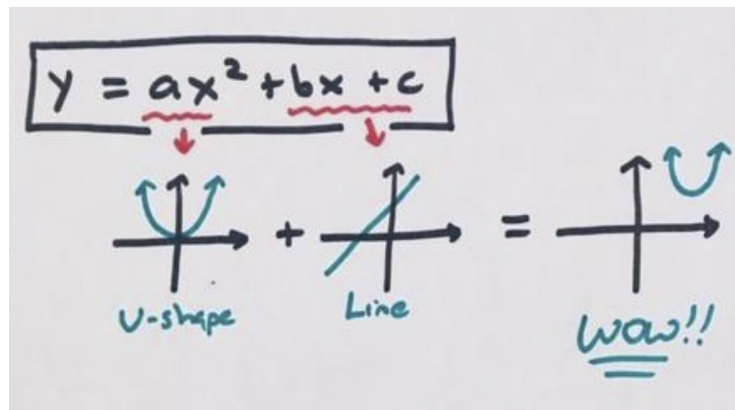 y = ax² + bx + c
+ =
U-shape
Line
Wow!!